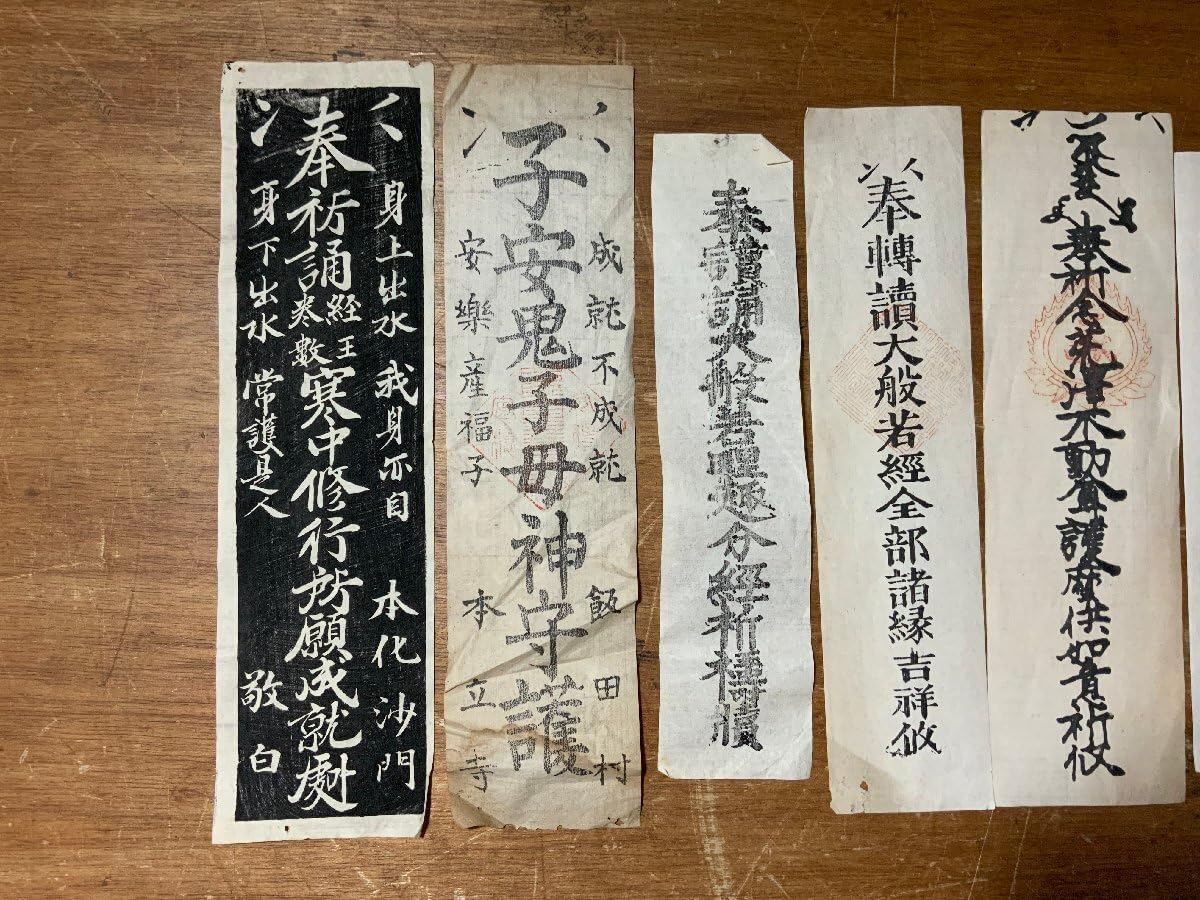 身上出水 我身亦自 本化沙門
奉祈誦経王巻数寒中修行所願成就
身下出水 常護是人 敬白
成就不成就 飯田村
子安鬼子母神守護
安樂産福子 本立寺
奉讀誦大般若理趣分経祈禱牘
奉轉讀大般若經全部諸縁吉祥攸
奉祈念
不動尊護摩供如意祈攸